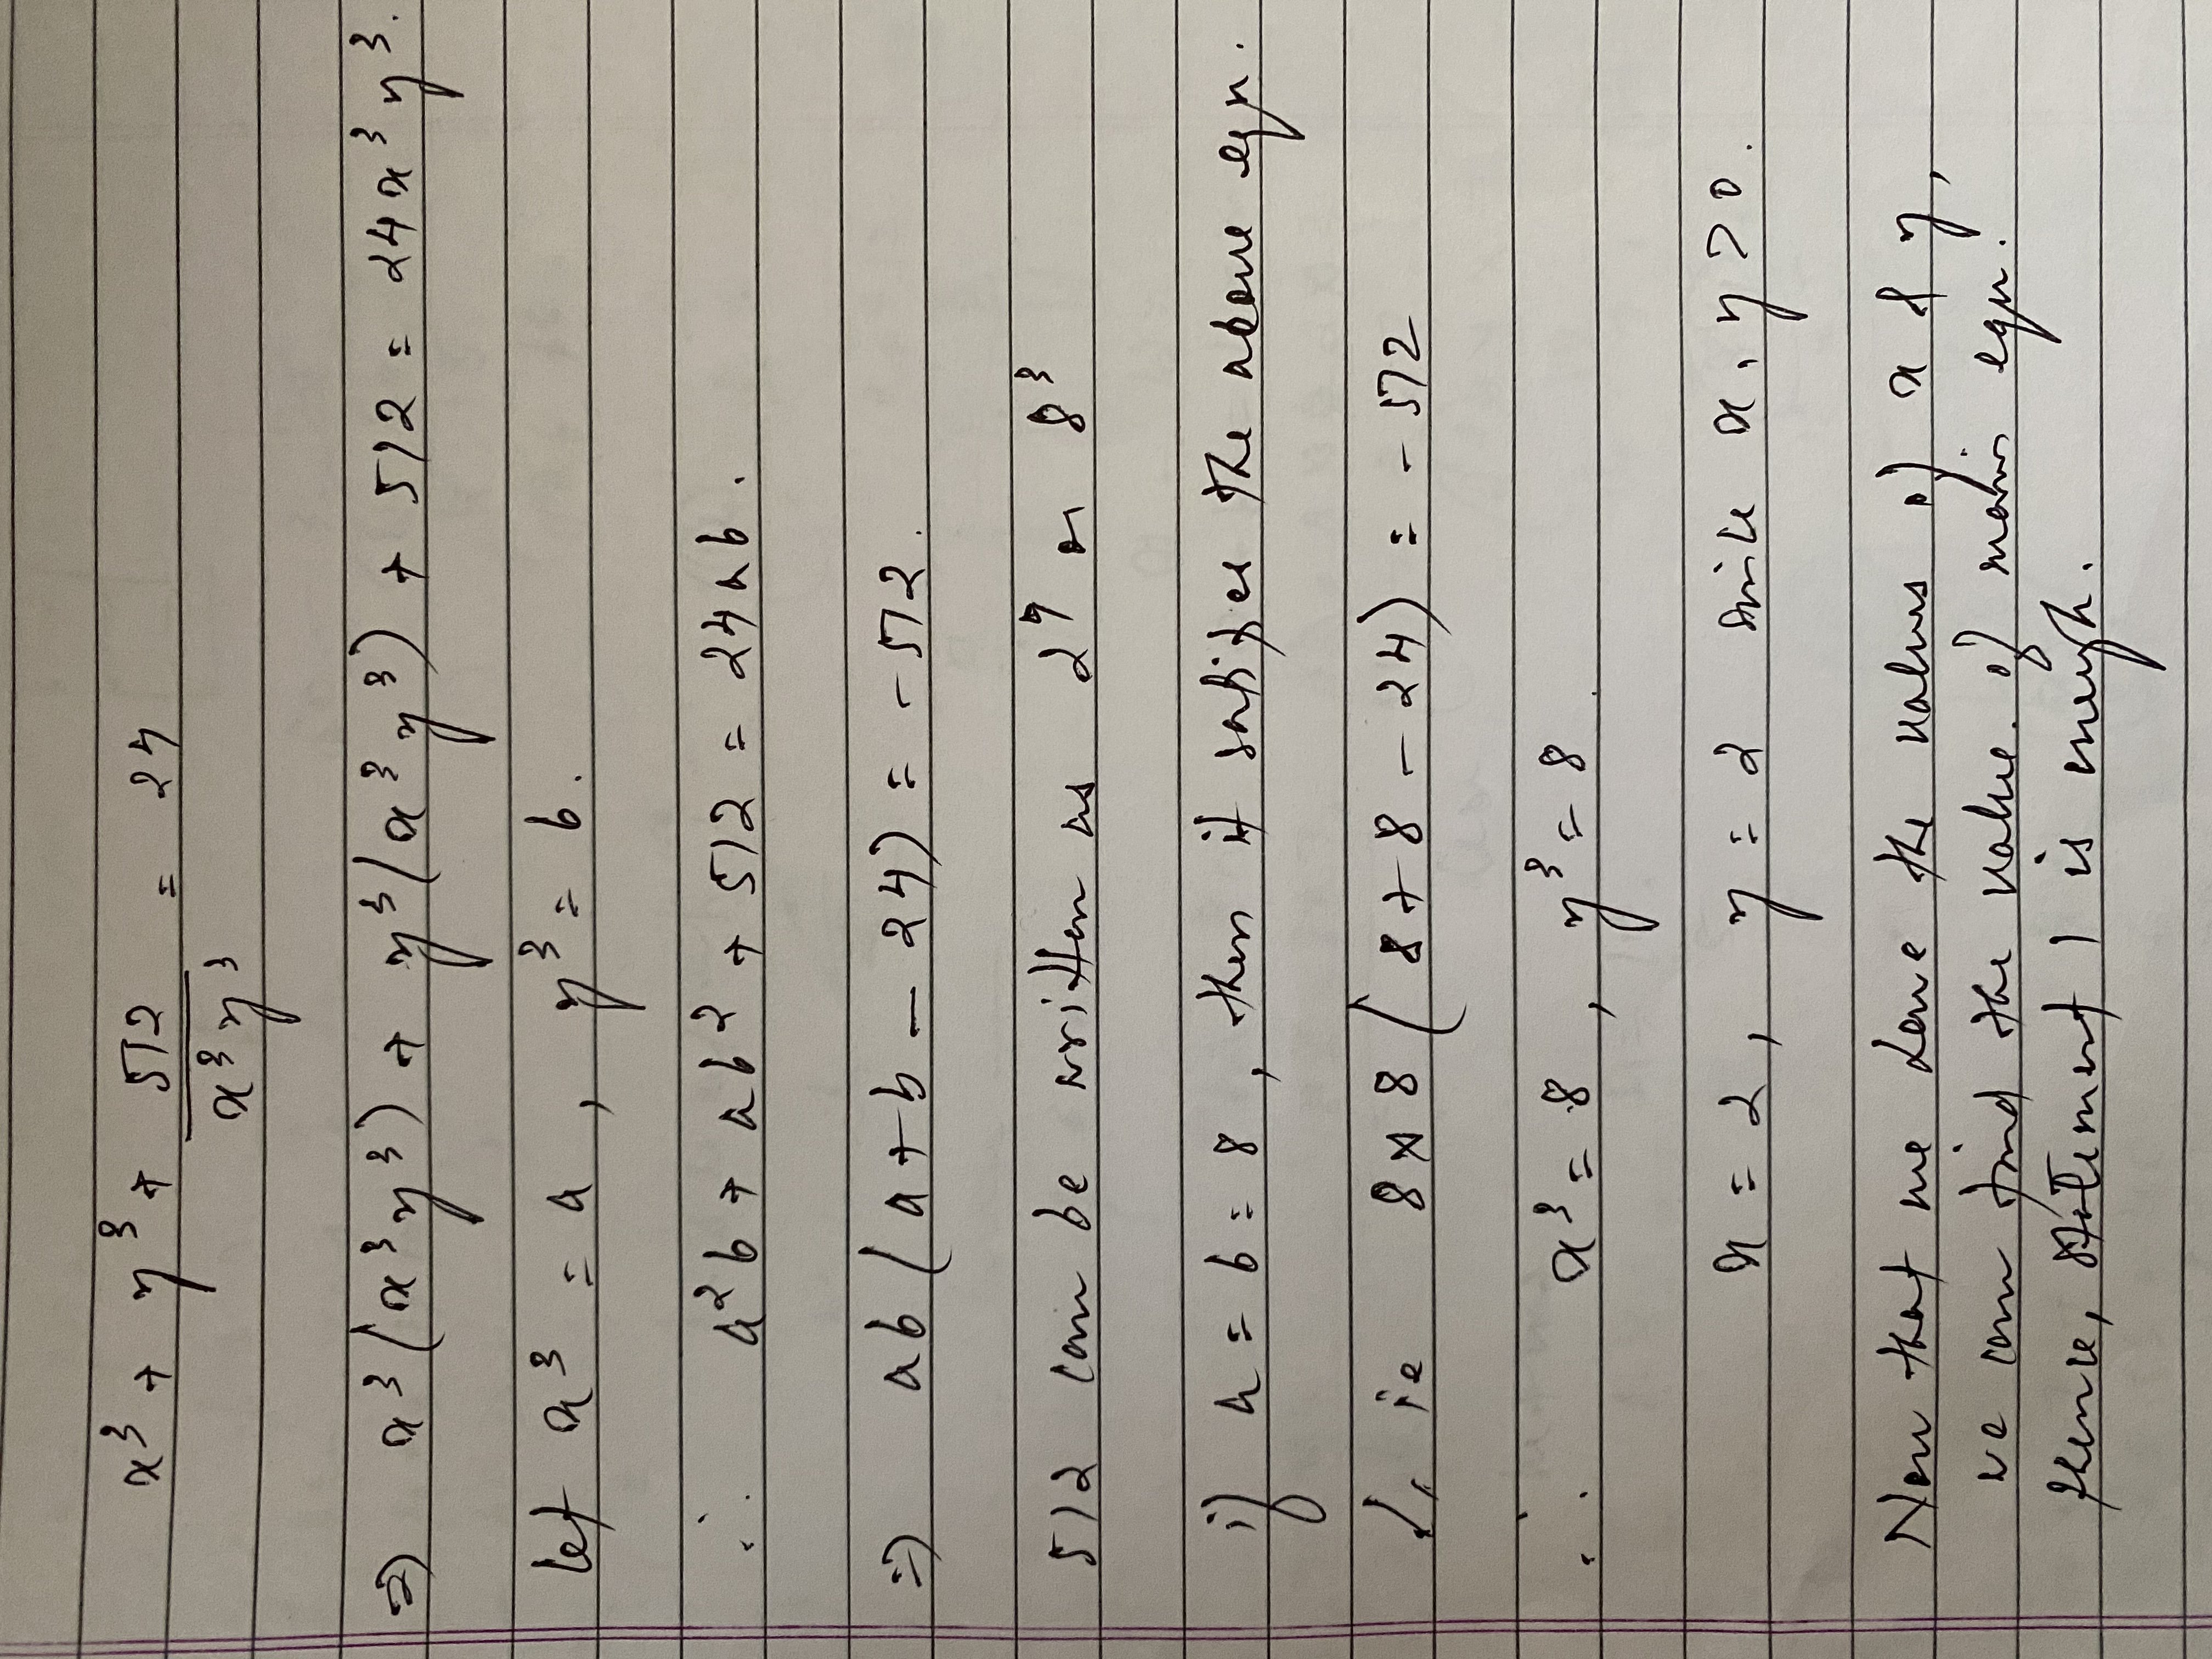 x³ + y³ + 512/x³y³ = 24
⇒ x³(x³y³) + y³(x³y³) + 512 = 24x³y³.
let x³ = a, y³ = b.
∴ a²b + ab² + 512 = 24ab.
⇒ ab(a+b-24) = -512.
512 can be written as 2⁹ or 8³
if a = b = 8, then it satisfies the above eqn.
ie 8×8(8+8-24) = -512
∴ x³ = 8, y³ = 8
x = 2, y = 2 since x, y > 0.
Now that we have the values of x & y,
we can find the value of main eqn.
Hence, statement 1 is enough.